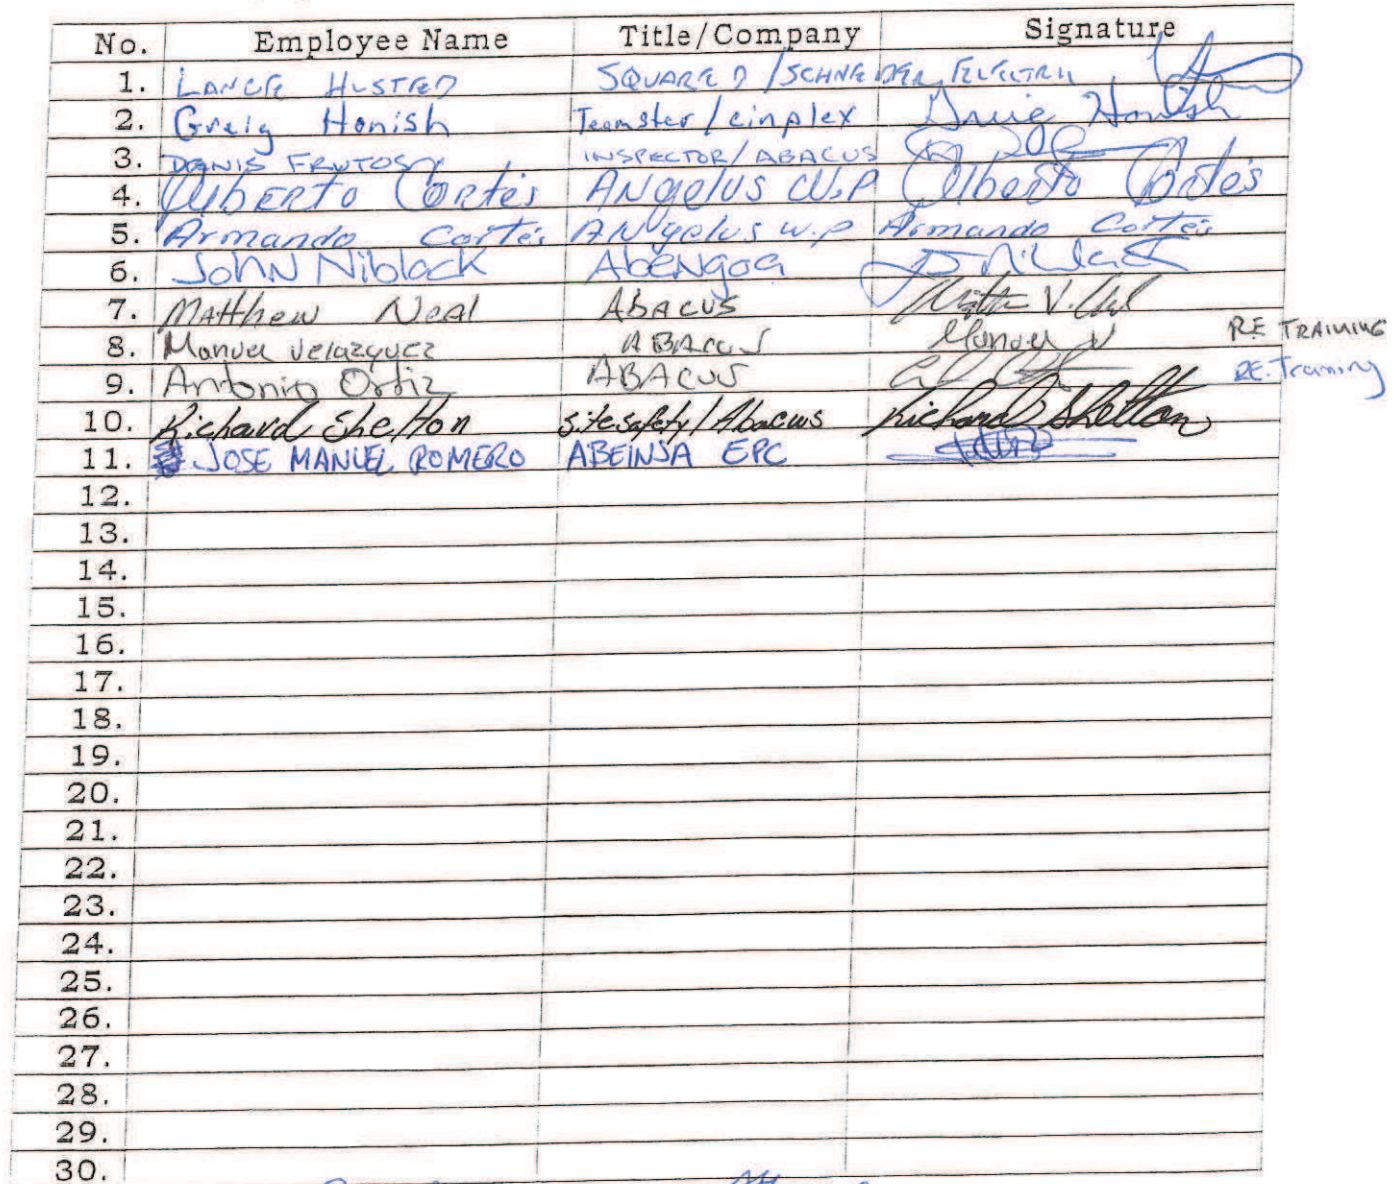 No. Employee Name Title/Company Signature
1. LANCE HUSTED SQUARE D / SCHNEIDER ELECTRIC
2. Greig Honish Teamster / cinplex Honish
3. DENIS FRUTOS INSPECTOR / ABACUS
4. Alberto Cortés ANgelus W.P Alberto Cortés
5. Armando Cortés ANgelus w.p Armando Cortés
6. JOHN Niblack AbeNgoa
7. Matthew Neal ABACUS
8. Manuel Velazquez ABACUS Manuel V RE TRAINING
9. Antonio Ortiz ABACUS RE. Training
10. Richard Shelton site safety / Abacus Richard Shelton
11. JOSE MANUEL ROMERO ABEINSA EPC
12.
13.
14.
15.
16.
17.
18.
19.
20.
21.
22.
23.
24.
25.
26.
27.
28.
29.
30.